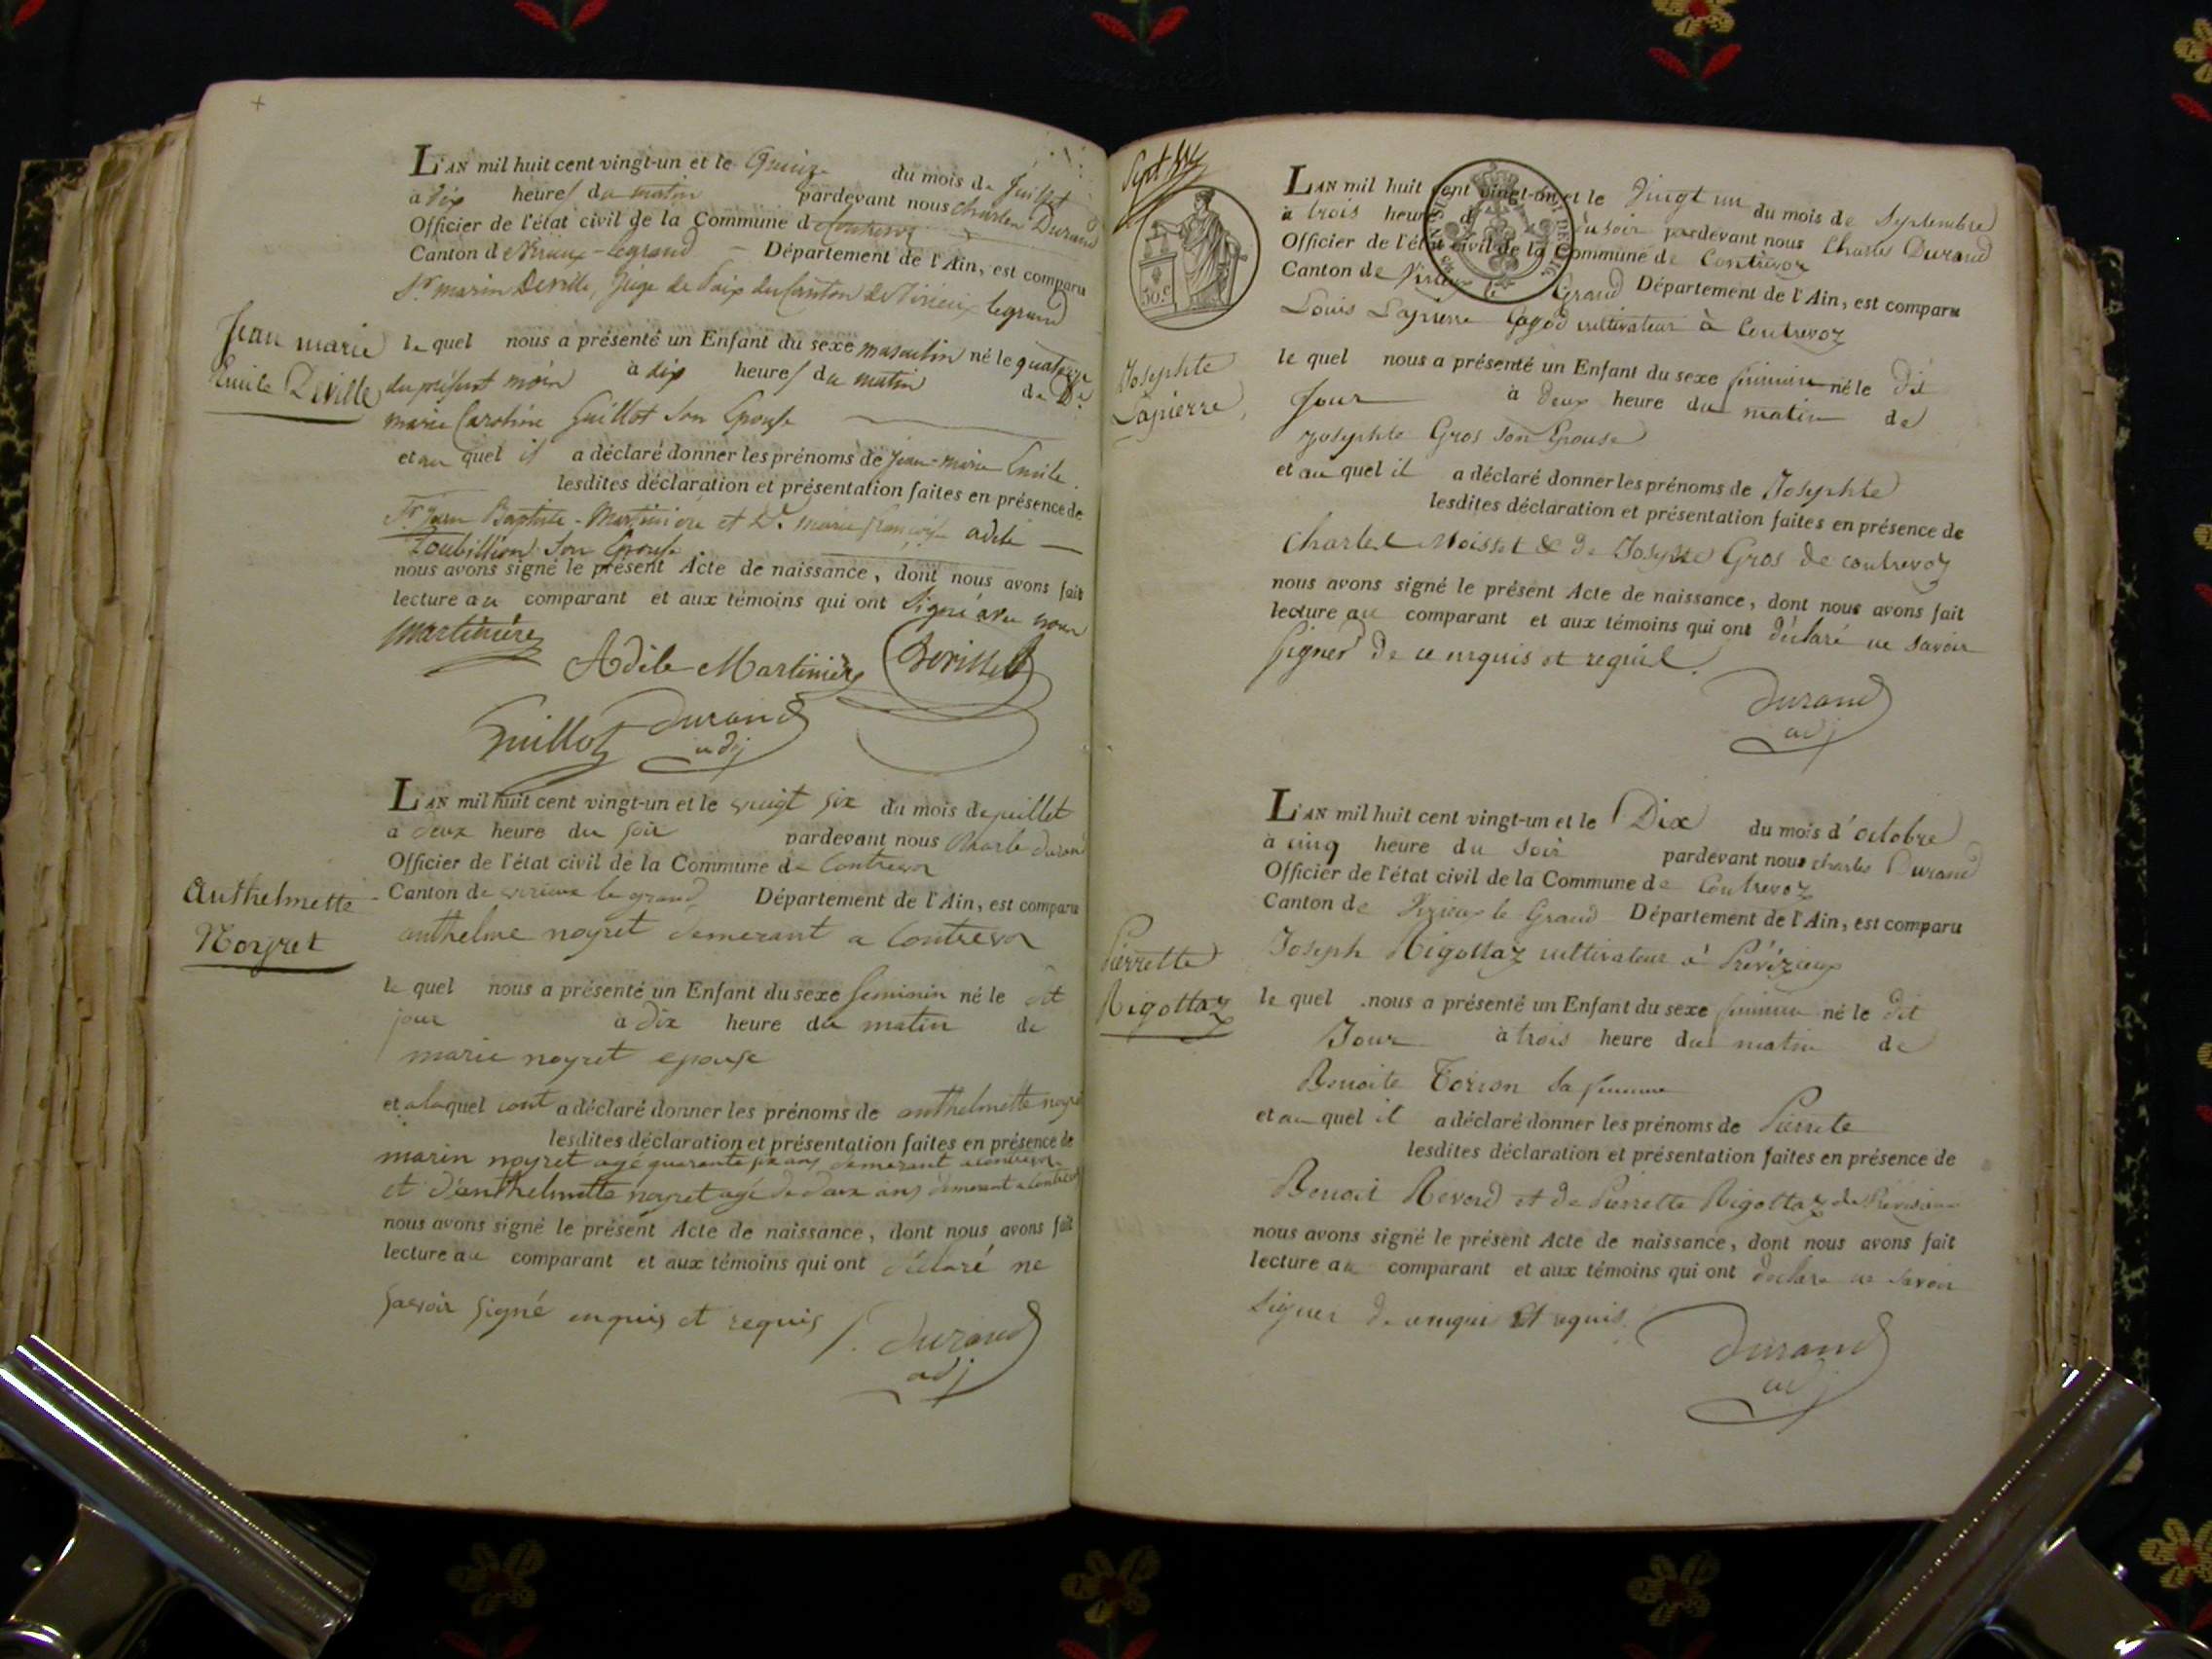 +
L'AN mil huit cent vingt-un et le Quinze du mois de Juillet
a dix heures du matin pardevant nous Charles Durand
Officier de l'état civil de la Commune de Contrevoz
Canton de Virieux-legrand Département de l'Ain, est comparu
Sr marin Deville, Juge de Paix du Canton de Virieux legrand
Jean marie
Emile Deville
le quel nous a présenté un Enfant du sexe masculin né le quatorze
du présent mois à dix heures du matin de De
marie Caroline Guillot son Epouse
et au quel il a déclaré donner les prénoms de Jean-marie Emile
lesdites déclaration et présentation faites en présence de
Sr Jean Baptiste Martinière et De marie françoise adèle
Toubillion son Epouse
nous avons signé le présent Acte de naissance, dont nous avons fait
lecture au comparant et aux témoins qui ont signé avec nous
Martinière
Adèle Martinière Deville
Guillot Durand
adj
L'AN mil huit cent vingt-un et le vingt six du mois de juillet
a deux heure du soir pardevant nous Charle durand
Officier de l'état civil de la Commune de Contrevoz
Canton de virieux le grand Département de l'Ain, est comparu
Anthelmette
Noyret
anthelme noyret demerant a Contrevoz
le quel nous a présenté un Enfant du sexe feminin né le dit
jour à dix heure du matin de
marie noyret epouse
et alaquel a déclaré donner les prénoms de anthelmette noyret
lesdites déclaration et présentation faites en présence de
marin noyret agé quarante six ans demerant a contrevoz
et d'anthelmette noyret agé de deux ans demerant a Contrevoz
nous avons signé le présent Acte de naissance, dont nous avons fait
lecture au comparant et aux témoins qui ont déclaré ne
savoir signé enquis et requis Durand
adj
Sept
30 c
L'AN mil huit cent vingt-un et le Vingt un du mois de Septembre
à trois heure du soir pardevant nous Charles Durand
Officier de l'état civil de la Commune de Contrevoz
Canton de Virieux le Grand Département de l'Ain, est comparu
Louis Lapierre cultivateur à Contrevoz
Josephte
Lapierre
le quel nous a présenté un Enfant du sexe feminin né le dit
Jour à deux heure du matin de
Josephte Gros son Epouse
et au quel il a déclaré donner les prénoms de Josephte
lesdites déclaration et présentation faites en présence de
Charles Moisset & de Josephte Gros de contrevoz
nous avons signé le présent Acte de naissance, dont nous avons fait
lecture au comparant et aux témoins qui ont déclaré ne savoir
signer de ce enquis et requis.
Durand
adj
L'AN mil huit cent vingt-un et le Dix du mois d'octobre
à cinq heure du soir pardevant nous charles Durand
Officier de l'état civil de la Commune de Contrevoz
Canton de Virieux le Grand Département de l'Ain, est comparu
Joseph Rigottaz cultivateur à Prévézieux
Pierrette
Rigottaz
le quel nous a présenté un Enfant du sexe feminin né le dit
Jour à trois heure du matin de
Benoite Torion sa femme
et au quel il a déclaré donner les prénoms de Pierrete
lesdites déclaration et présentation faites en présence de
Benoit Révord et de Pierrette Rigottaz de
nous avons signé le présent Acte de naissance, dont nous avons fait
lecture au comparant et aux témoins qui ont declare ne savoir
signer de ce enquis et requis.
Durand
adj